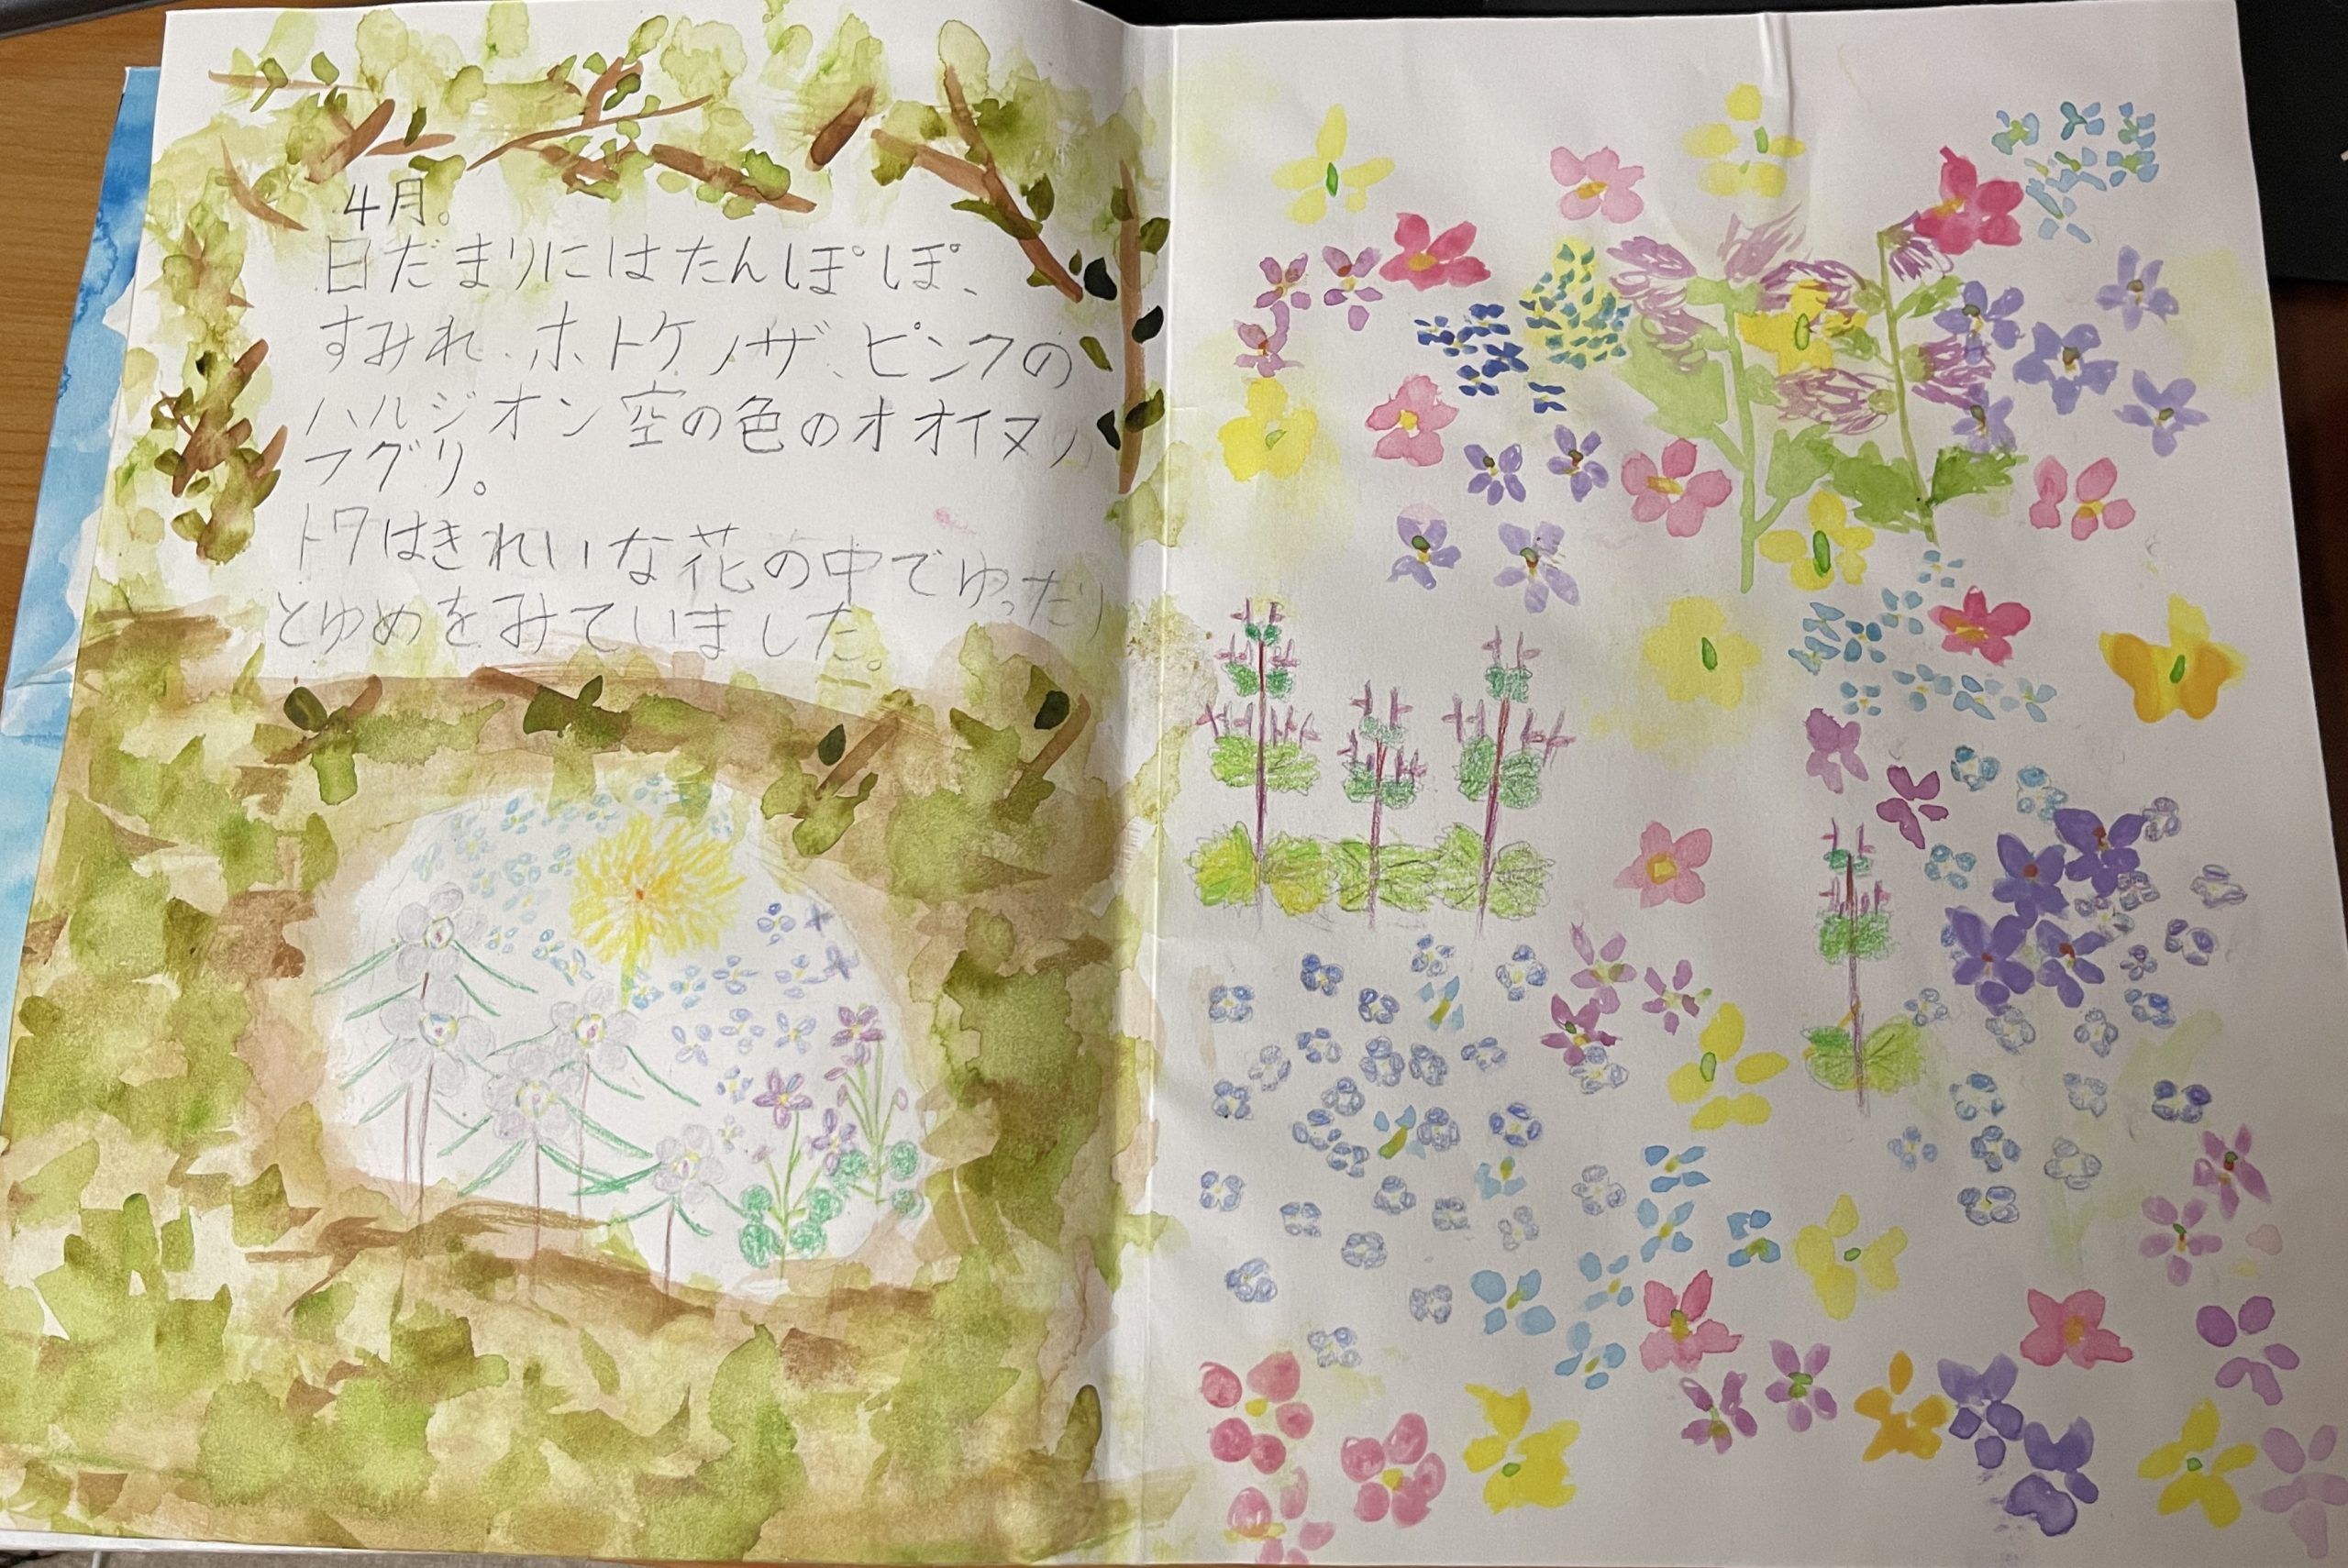 4月。
日だまりにはたんぽぽ、
すみれ、ホトケノザ、ピンクの
ハルジオン空の色のオオイヌノ
フグリ。
トワはきれいな花の中でゆったり
とゆめをみていました。